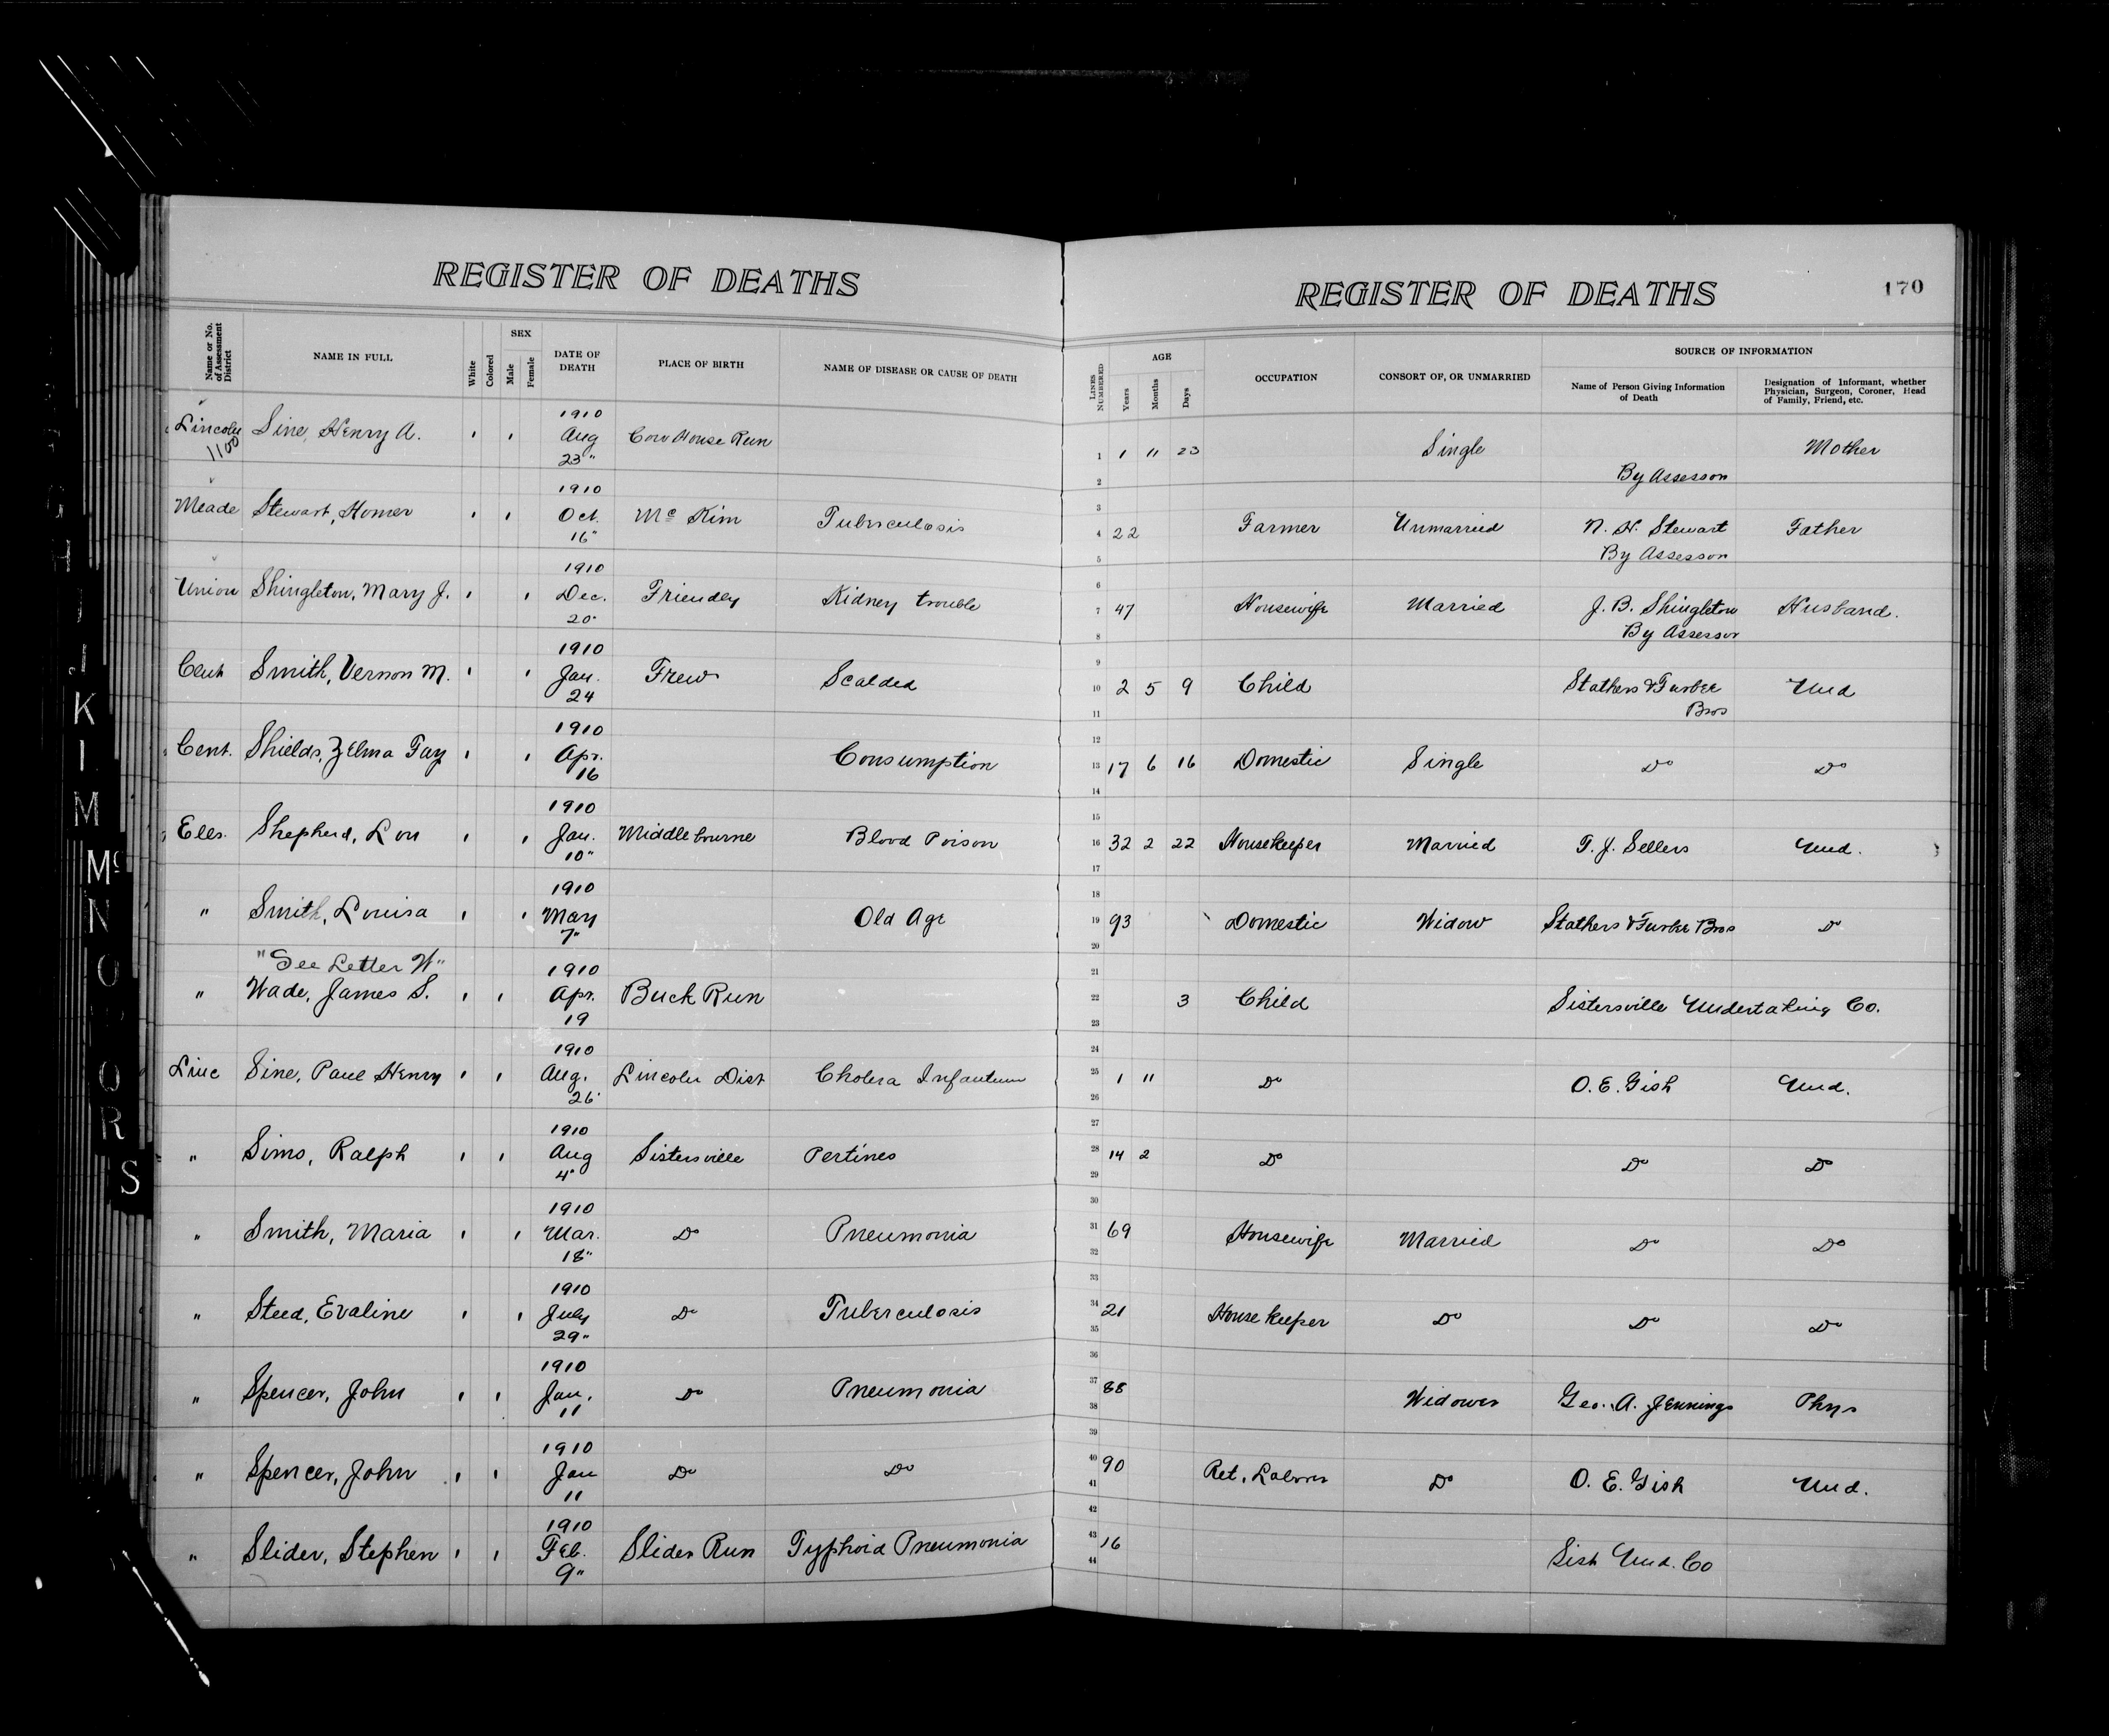 REGISTER OF DEATHS
REGISTER OF DEATHS 170
Name or No. of Assessment District | NAME IN FULL | White | Colored | SEX Male | Female | DATE OF DEATH | PLACE OF BIRTH | NAME OF DISEASE OR CAUSE OF DEATH | LINES NUMBERED | AGE Years | Months | Days | OCCUPATION | CONSORT OF, OR UNMARRIED | SOURCE OF INFORMATION
Name of Person Giving Information of Death | Designation of Informant, whether Physician, Surgeon, Coroner, Head of Family, Friend, etc.
Lincoln 1100 Sine, Henry A. 1910 Aug 23" Cow House Run 1 1 11 23 Single Mother
2 By Assessor
3
Meade Stewart, Homer 1910 Oct. 16" Mc Kim Tuberculosis 4 22 Farmer Unmarried N. H. Stewart Father
5 By Assessor
6
Union Shingleton, Mary J. 1910 Dec. 20" Friendly Kidney trouble 7 47 Housewife Married J. B. Shingleton Husband.
8 By Assessor
9
Cent Smith, Vernon M. 1910 Jan. 24 Frew Scalded 10 2 5 9 Child Stathers & Furbee Und
11 Bros
12
Cent. Shields, Zelma Fay 1910 Apr. 16 Consumption 13 17 6 16 Domestic Single Do Do
14
15
Ells. Shepherd, Lou 1910 Jan. 10" Middlebourne Blood Poison 16 32 2 22 Housekeeper Married T. J. Sellers Und.
17
18
" Smith, Louisa 1910 May 7" Old Age 19 93 Domestic Widow Stathers & Furbee Bros Do
20
"See Letter W" 21
" Wade, James S. 1910 Apr. 19 Buck Run 22 3 Child Sistersville Undertaking Co.
23
24
Linc Sine, Paul Henry 1910 Aug. 26" Lincoln Dist Cholera Infantum 25 1 11 Do O. E. Gish Und.
26
27
" Sims, Ralph 1910 Aug 4" Sistersville Pertines 28 14 2 Do Do Do
29
30
" Smith, Maria 1910 Mar. 18" Do Pneumonia 31 69 Housewife Married Do Do
32
33
" Steed, Evaline 1910 July 29" Do Tuberculosis 34 21 House keeper Do Do Do
35
36
" Spencer, John 1910 Jan. 11 Do Pneumonia 37 88 Widower Geo. A. Jennings Phys
38
39
" Spencer, John 1910 Jan 11 Do Do 40 90 Ret. Labor Do O. E. Gish Und.
41
42
" Slider, Stephen 1910 Feb. 9" Slider Run Typhoid Pneumonia 43 16 Sist Und. Co
44
G
H
I
J
K
L
M
Mc
N
O
O
R
S